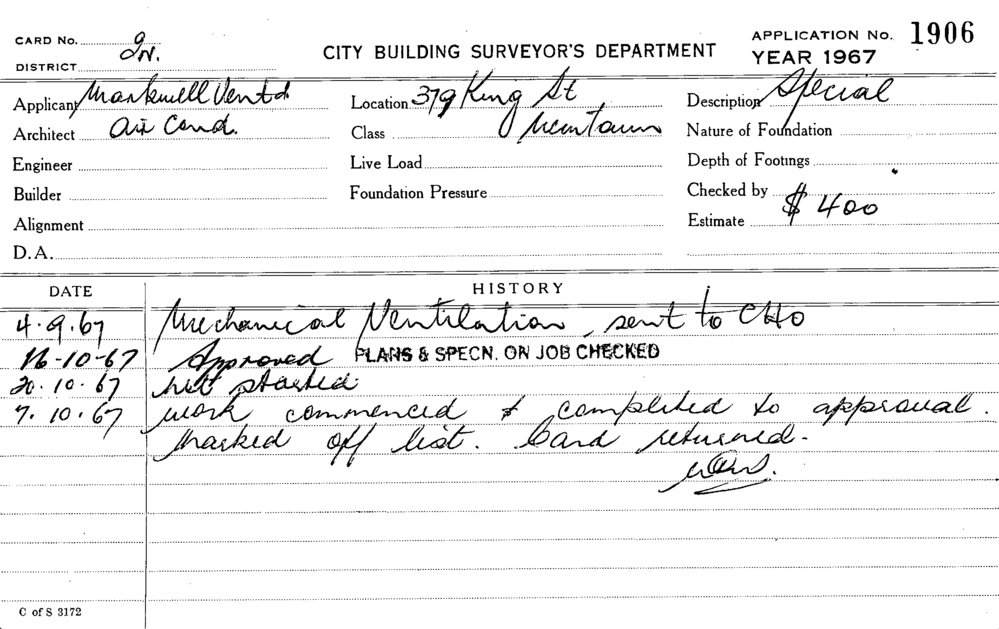 CARD No. 2
DISTRICT IN.
CITY BUILDING SURVEYOR'S DEPARTMENT
APPLICATION No. 1906
YEAR 1967
Applicant Markwell Vent
Location 379 King St
Description Special
Architect Air Cond.
Class Newtown
Nature of Foundation
Engineer
Live Load
Depth of Footings
Builder
Foundation Pressure
Checked by
Alignment
Estimate $400
D.A.
DATE HISTORY
4.9.67 Mechanical Ventilation sent to CHO
16-10-67 Approved PLANS & SPECN. ON JOB CHECKED
20.10.67 not started
7.10.67 work commenced & completed to approval.
Marked off list. Card returned.
C of S 3172